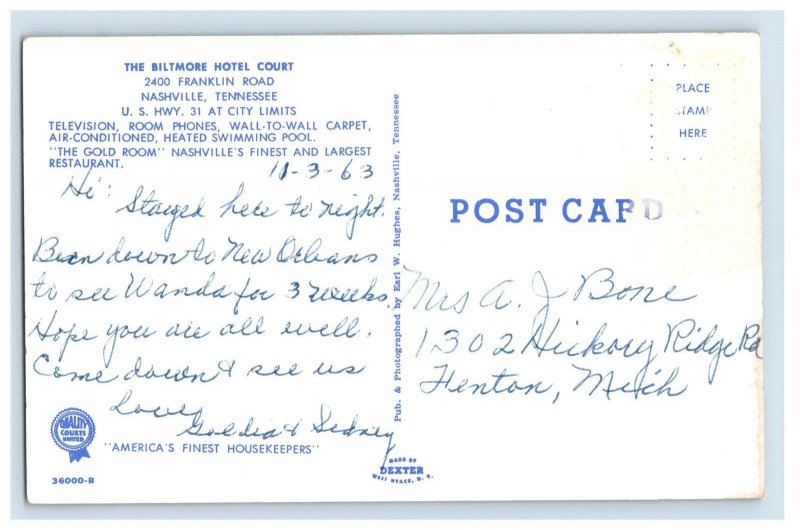 THE BILTMORE HOTEL COURT
2400 FRANKLIN ROAD
NASHVILLE, TENNESSEE
U. S. HWY. 31 AT CITY LIMITS
TELEVISION, ROOM PHONES, WALL-TO-WALL CARPET,
AIR-CONDITIONED, HEATED SWIMMING POOL.
"THE GOLD ROOM" NASHVILLE'S FINEST AND LARGEST
RESTAURANT.
11-3-63
Hi:
Stayed here to night.
Been down to New Orleans
to see Wanda for 3 weeks.
Hope you are all well.
Come down & see us
Love
Goldia & Sidney
QUALITY
COURTS
UNITED
"AMERICA'S FINEST HOUSEKEEPERS"
36000-B
Pub. & Photographed by Earl W. Hughes, Nashville, Tennessee
MADE BY
DEXTER
WEST NYACK, N. Y.
PLACE
STAMP
HERE
POST CARD
Mrs A. J Bone
1302 Hickory Ridge Rd
Fenton, Mich